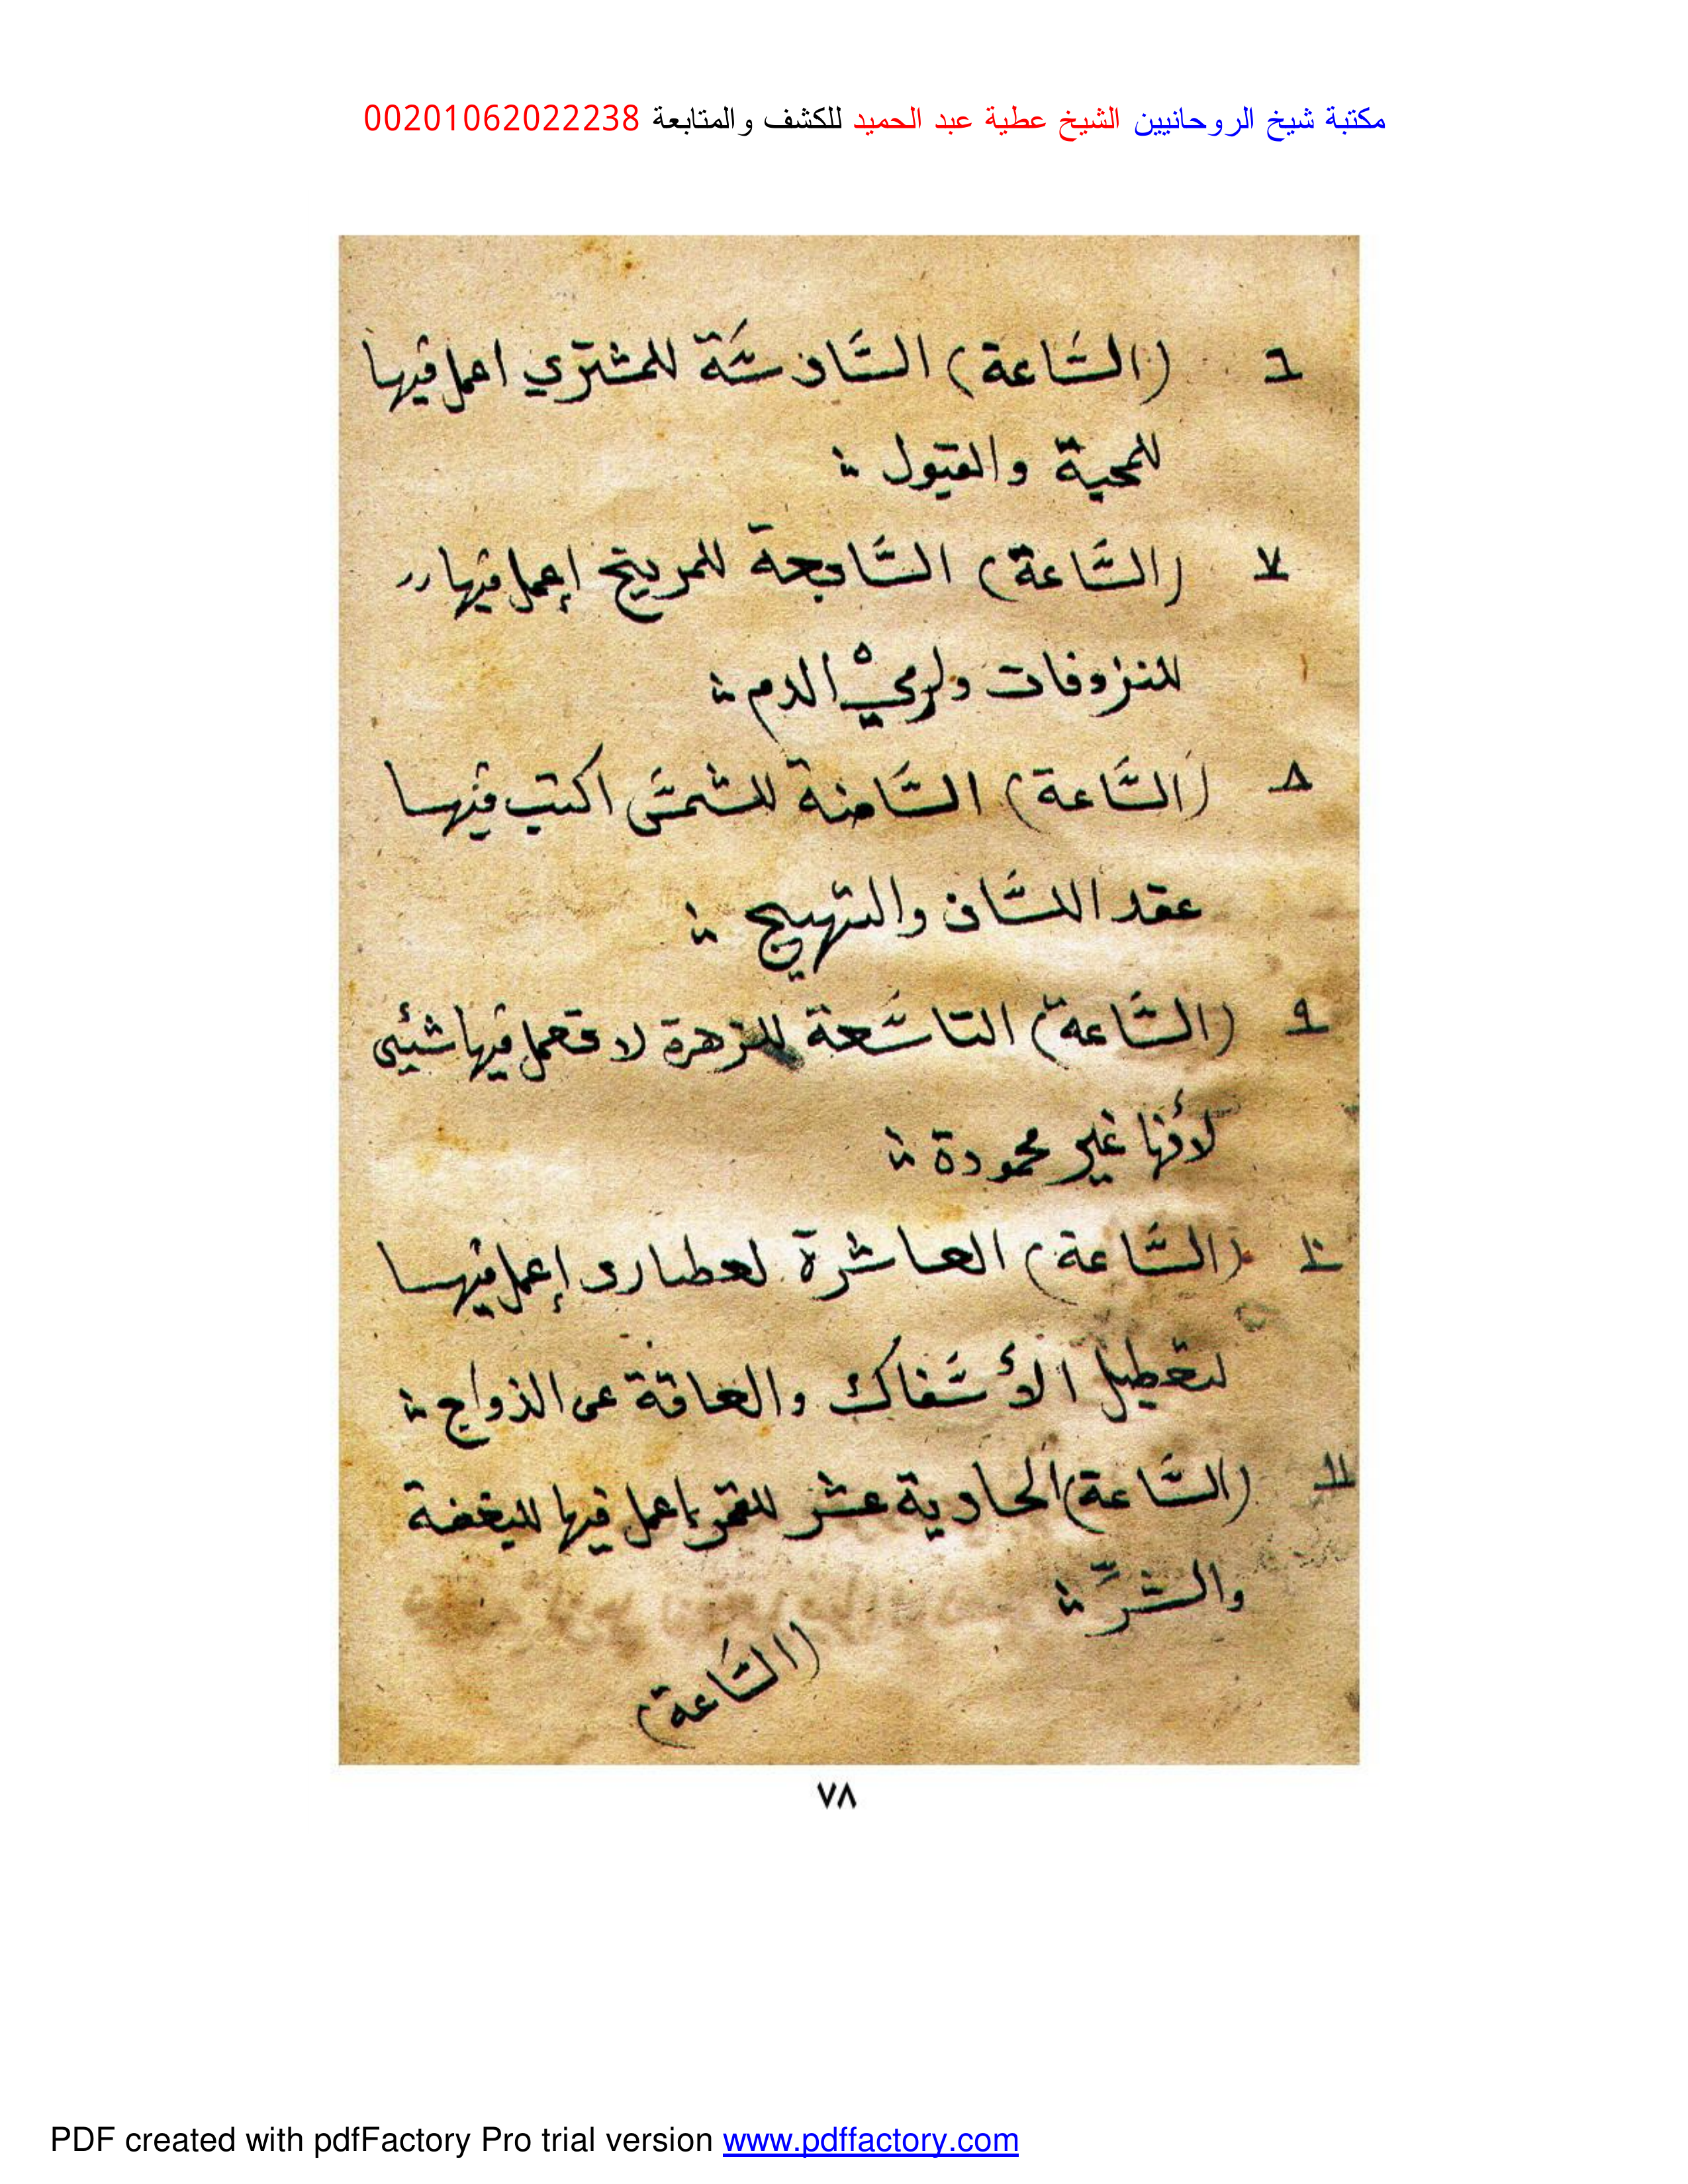 مكتبة شيخ الروحانيين الشيخ عطية عبد الحميد للكشف والمتابعة 00201062022238
٦ (السَّاعة) السَّادسَّة للمشتري اعمل فيها
للمحبة والقبول
٧ (السَّاعة) السَّابعة للمريخ إعمل فيها
للنزوفات ولرميْ الدم
٨ (السَّاعة) السَّامنة للشمسَّ اكتب فيها
عقد اللسَّان والتهييج
٩ (السَّاعة) التاسَّعة للزهرة لا تعمل فيها شيئى
لأنها غير محمودة
١٠ (السَّاعة) العاشرة لعطارد إعمل فيها
لتعطيل الأسَّفاك والعاقة عن الذواج
١١ (السَّاعة) الحادية عشر للقمر إعمل فيها للبغضة
والشرّ
(السَّاعة)
٧٨
PDF created with pdfFactory Pro trial version www.pdffactory.com